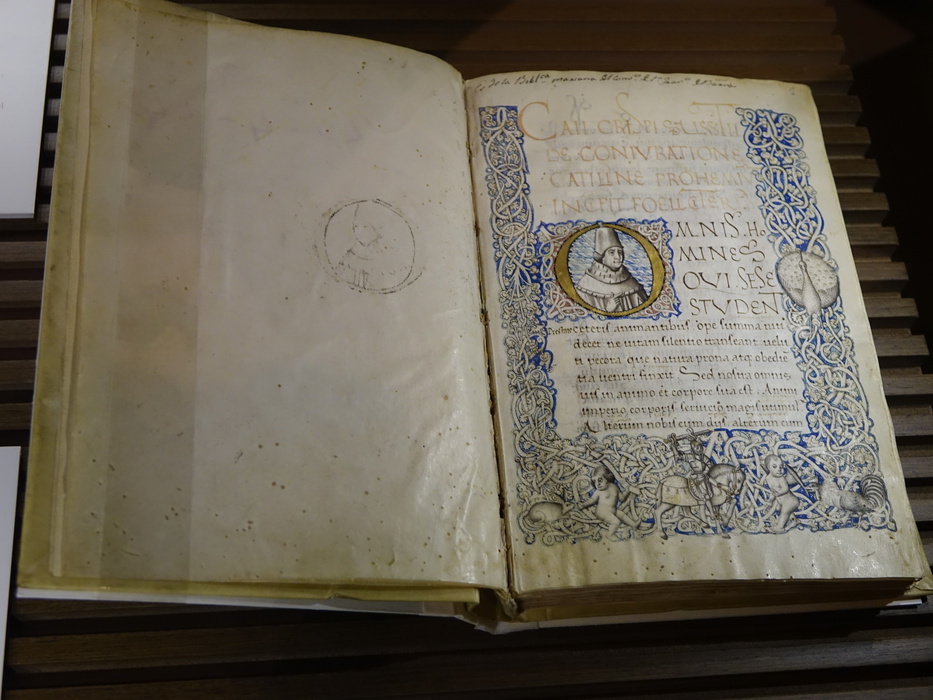 de la Bibl.ca
DE CONIVRATIONE
CATILLINE PROHEMI
INCIPIT FOELICITER
OMNIS HO
MINES
QVI SESE
STVDENT
ceteris animantibus ope summa niti
decet ne uitam silentio transeant uelu
ti pecora que natura prona atq; obedie
tia uentri finxit Sed nostra omnis
uis in animo et corpore sita est. Animi
imperio corporis seruicio magis utimur
Alterum nobis cum diis alterum cum